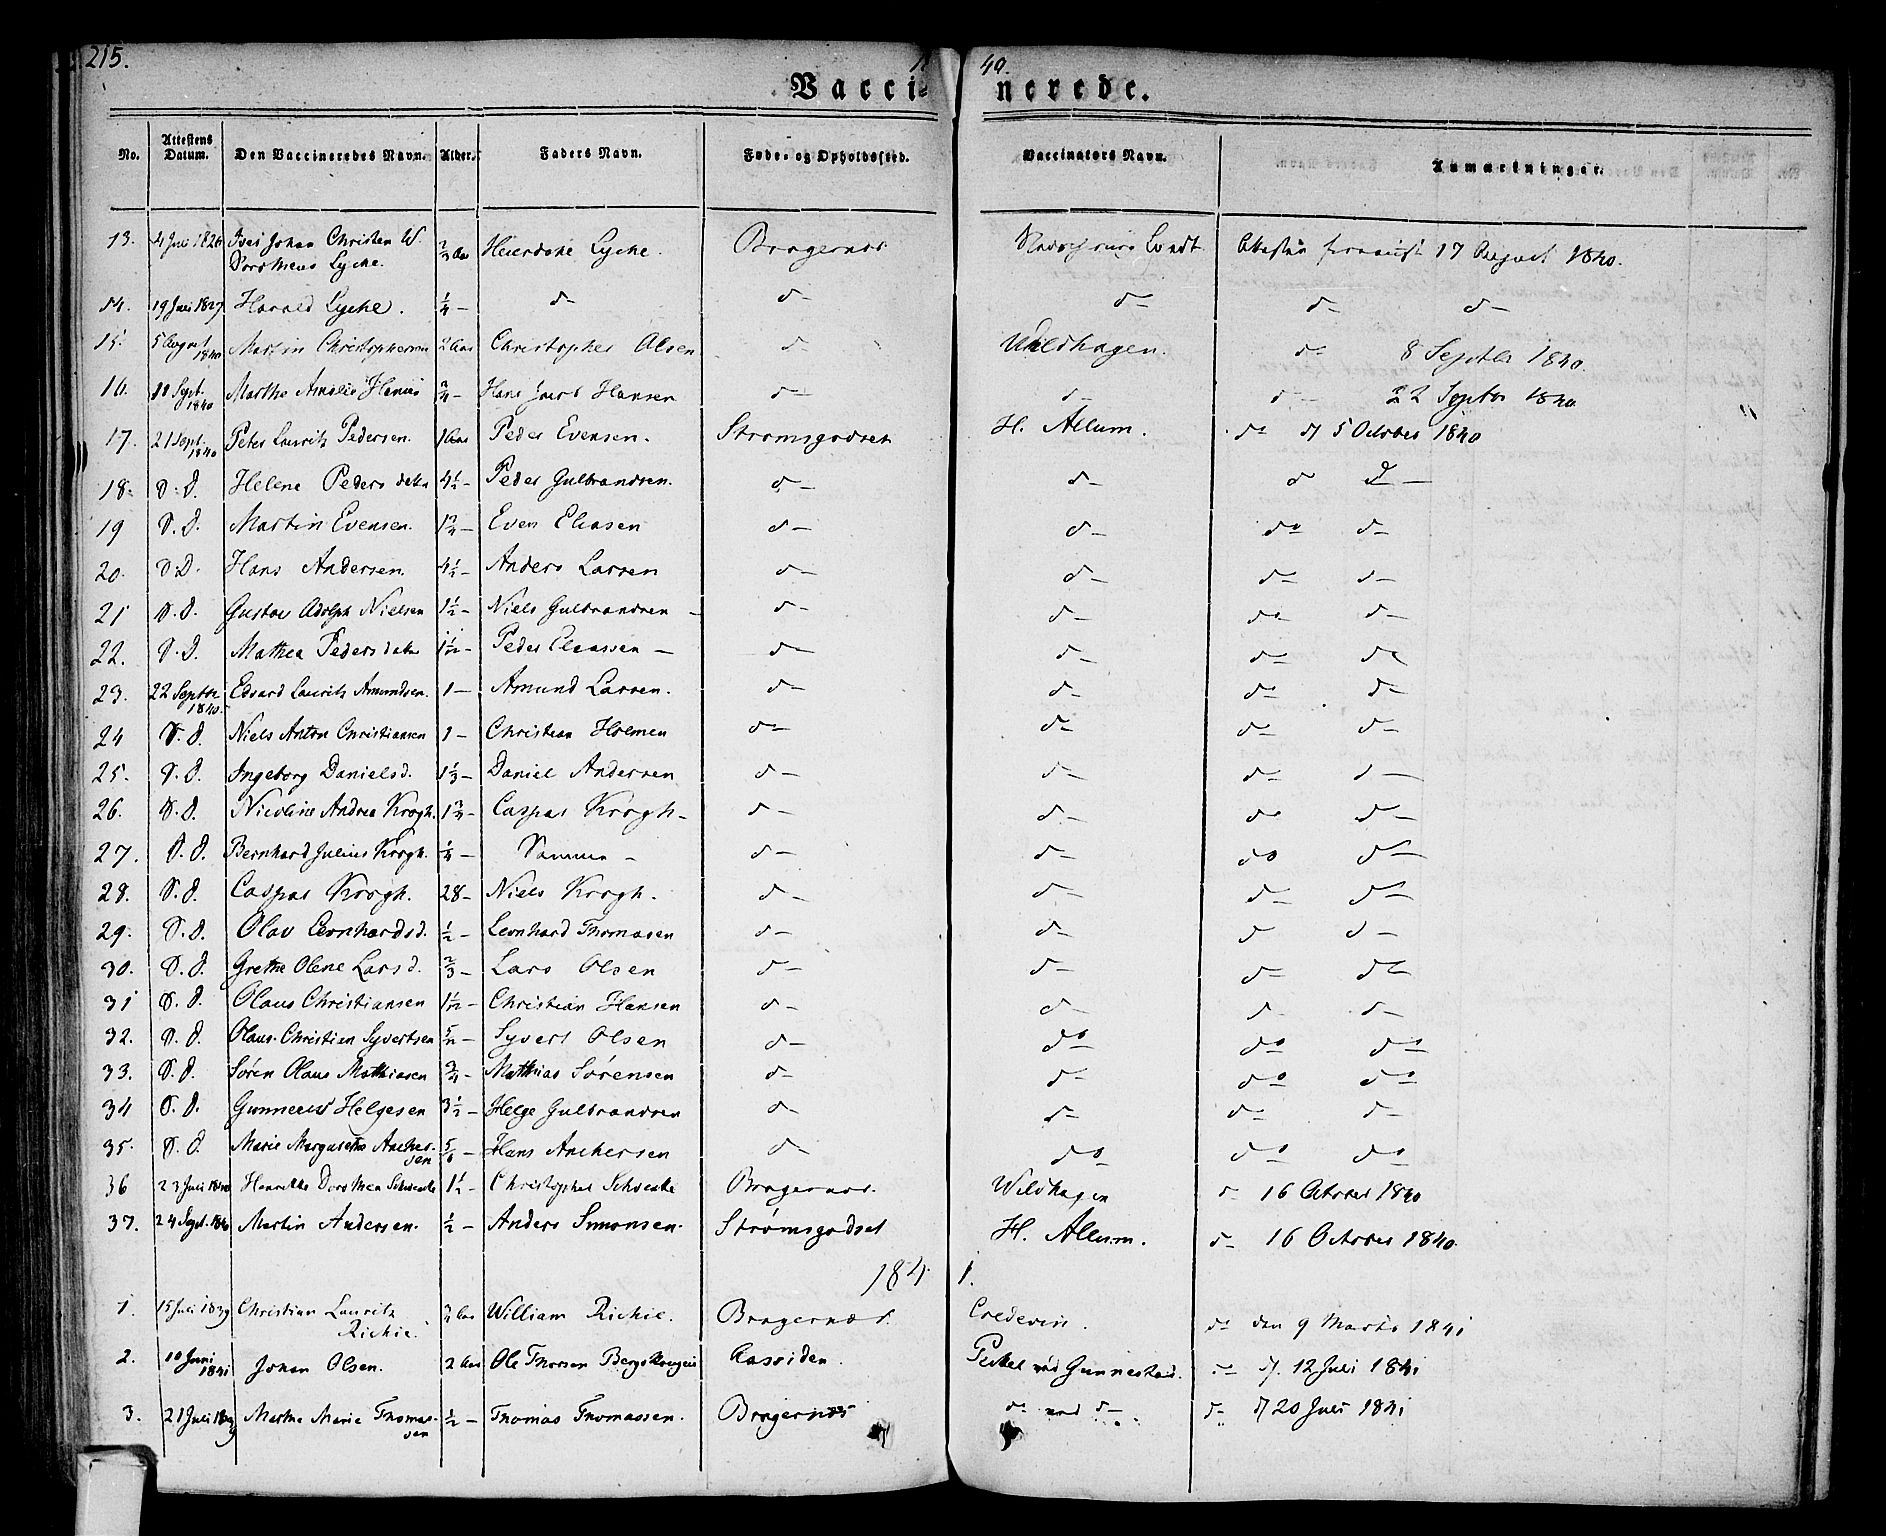 215. 18 40.
Vacci- nerede.
No. Attestens Datum. Den Vaccineredes Navn. Alder. Faders Navn. Føde- og Opholdssted. Vaccinators Navn. Anmærkninger.
13. 4 Juli 1826 Johan Christen W. Dorotheus Lyche. Lyche. Bragernæs Lundt. Attesten 17 August 1840.
14. 19 Juli 1827 Harald Lyche. 1/4 — d— d— d— d— d—
15. 5 August 1840 Martin Christophersen 2 Aar Christopher Olsen d— Wildhagen. do 8 Septbr 1840.
16. 18 Sept. 1840 Marthe Amalie Hansen 3/4 — Hans Jacob Hansen d— d— d— 22 Septbr 1840
17. 21 Sept. 1840 Peter Lauritz Pedersen. 1 Aar Peder Evensen. Stromsgodset H. Allum. do d 5 October 1840
18. D. D. Helene Pedersdatter 4 1/2 — Peder Gulbrandsen. d— d— d d—
19 D. D. Martin Evensen. 1 3/4 — Even Eliasen d— d— do d—
20. D. D. Hans Andersen. 4 1/2 — Anders Larsen d— d— d— d—
21 D. D. Gustav Adolph Nielsen 1 1/2 — Niels Gulbrandsen — d— d— do d—
22. D. D. Mathea Pedersdatter 1 1/2 — Peder Eliassen — d— d— do do
23. 22 Septbr 1840. Edvard Lauritz Amundsen. 1 — Amund Larsen. d— d— do d—
24 D. D. Niels Anton Christiansen 1 — Christian Holmen do d— do d—
25. D. D. Ingeborg Danielsd. 1 1/3 — Daniel Andersen d— d— do d—
26. D. D. Nicoline Andrea Krogh. 1 2/3 — Caspar Krogh — d— d— do d—
27. D. D. Bernhard Julius Krogh. 1/4 — Samme — d— d— do do
28. D. D. Caspar Krogh. 28 — Niels Krogh. d— d— d— do
29. D. D. Olav Leonhardsd. 1/2 — Leonhard Thomasen d— d— d d—
30. D. D. Grethe Olene Larsd. 2/3 — Lars Olsen d— d— d— do
31 D. D. Olaus Christiansen 1 1/2 — Christian Hansen d— d— d— d—
32. D. D. Olaus Christian Syvertsen — Syvert Olsen d— do do do
33. D. D. Søren Olaus Mathiasen 3/4 — Mathias Sørensen d— d— do do
34 D. D. Helgesen 3 1/2 — Helge Gulbrandsen d— d— d— d—
35. D. D. Marie Margarethe Anchersen 5/6 — Hans Anchersen d— do do do
36 23 Juli 1840 Henriette Dorothea Schwenke 1 1/2 — Christopher Schwenke Bragernæs. Wildhagen d— 16 October 1840
37. 24 Sept. 1840 Martin Andersen. 1/2 — Anders Simonsen. Strømsgodset H. Allum. d— 16 October 1840.
184 1.
1. 15 Juli 1839 Christian Lauritz Richie. Aar William Richie. Bragernæs. do den 9 Marts 1841
2. 10 Juni 1841 Johan Olsen. 2 Aar Ole Thorsen Gunnestad. d. 12 Juli 1841
3. 21 Juli 1839 Marthe Marie Thomassen 1/2 — Thomas Thomassen. Bragernæs do ved d— d— d 20 Juli 1841